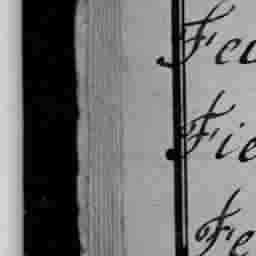 Fec
Fie
Fe